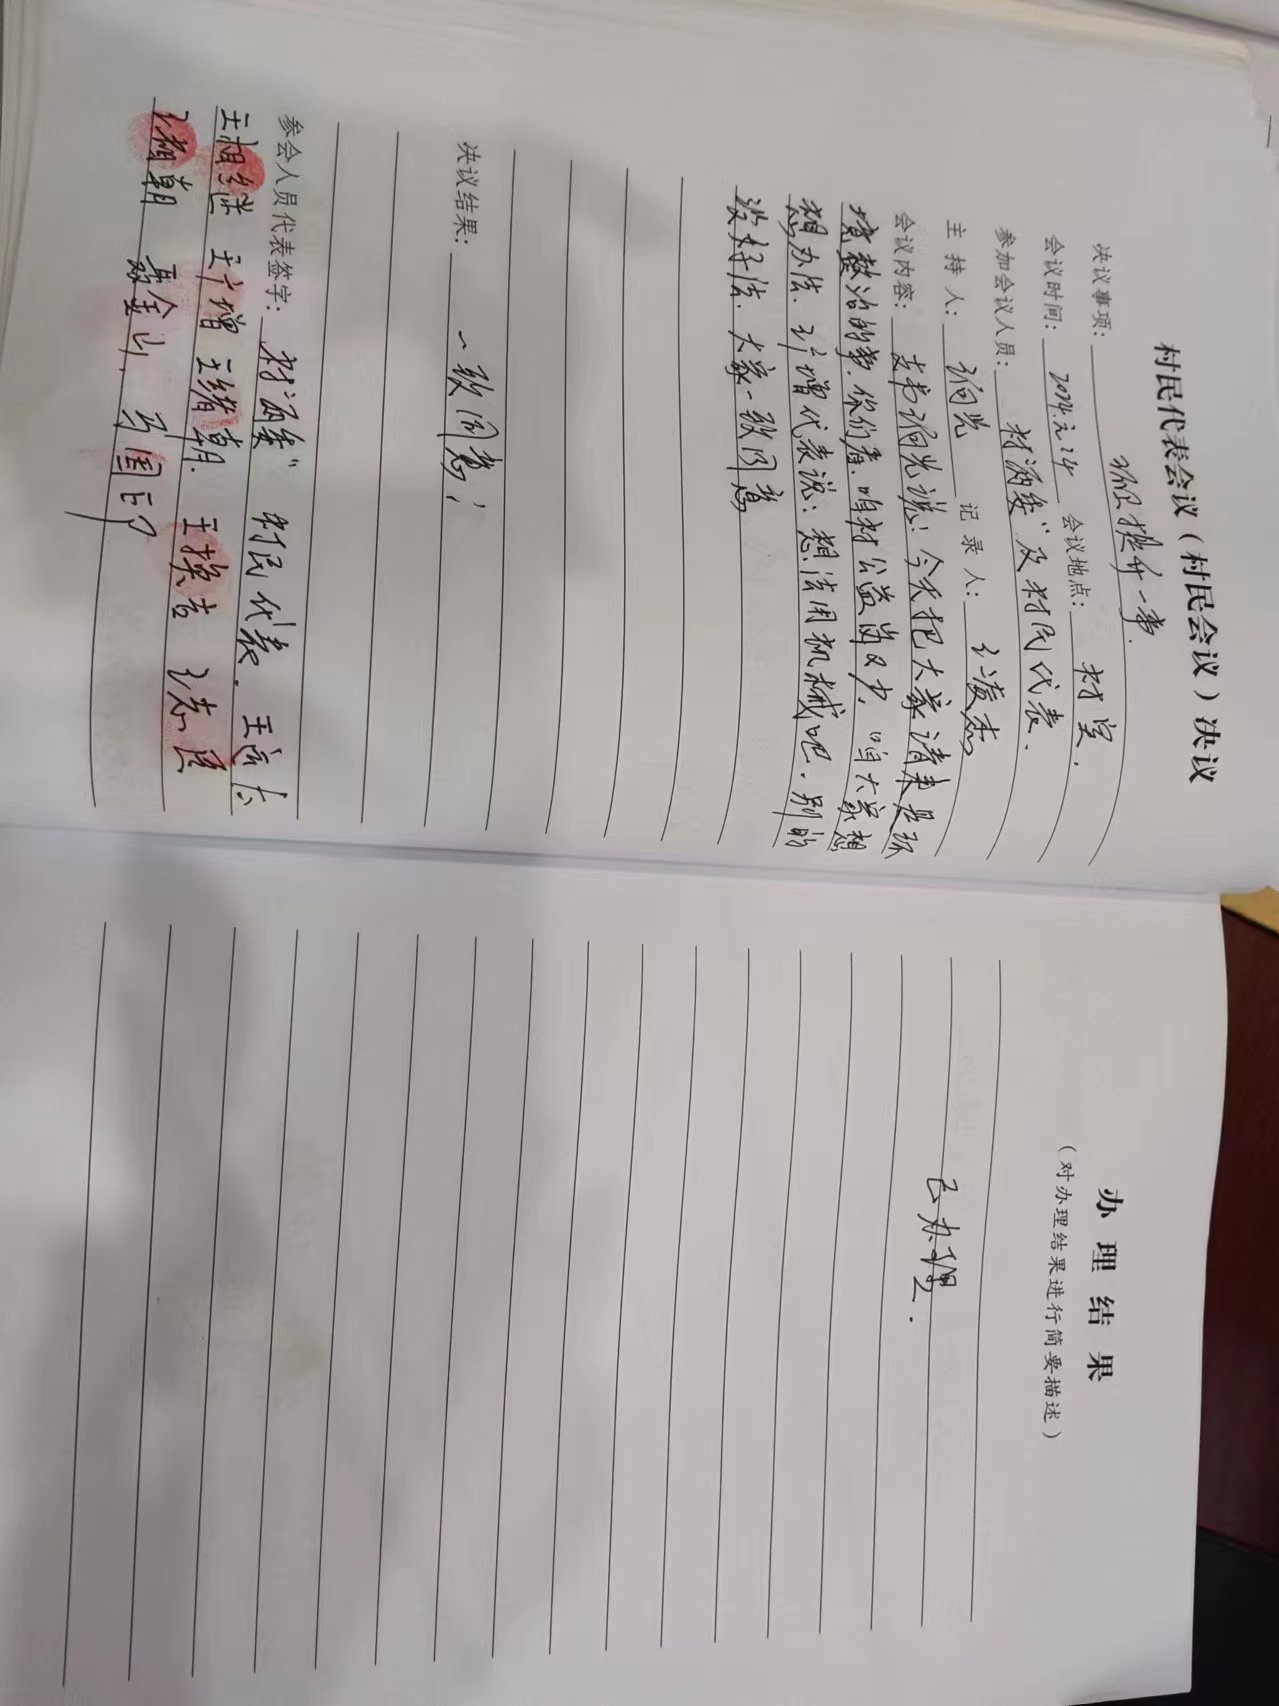 村民代表会议（村民会议）决议
决议事项：环卫提升一事.
会议时间：会议地点：村室.
参加会议人员：村两委"及村民代表.
主持人：记录人：
会议内容：支书说：今天把大家请来是环
境整治的事.你们看.咱村公益岗又少,咱大家想
想办法.代表说：想法用机械吧.别的
没好法.大家一致同意
决议结果：一致同意;
参会人员代表签字：村两委"村民代表.王
王相 王广增 王绪朝.王换吉
绪朝 金山.国印
办理结果
（对办理结果进行简要描述）
已办理.